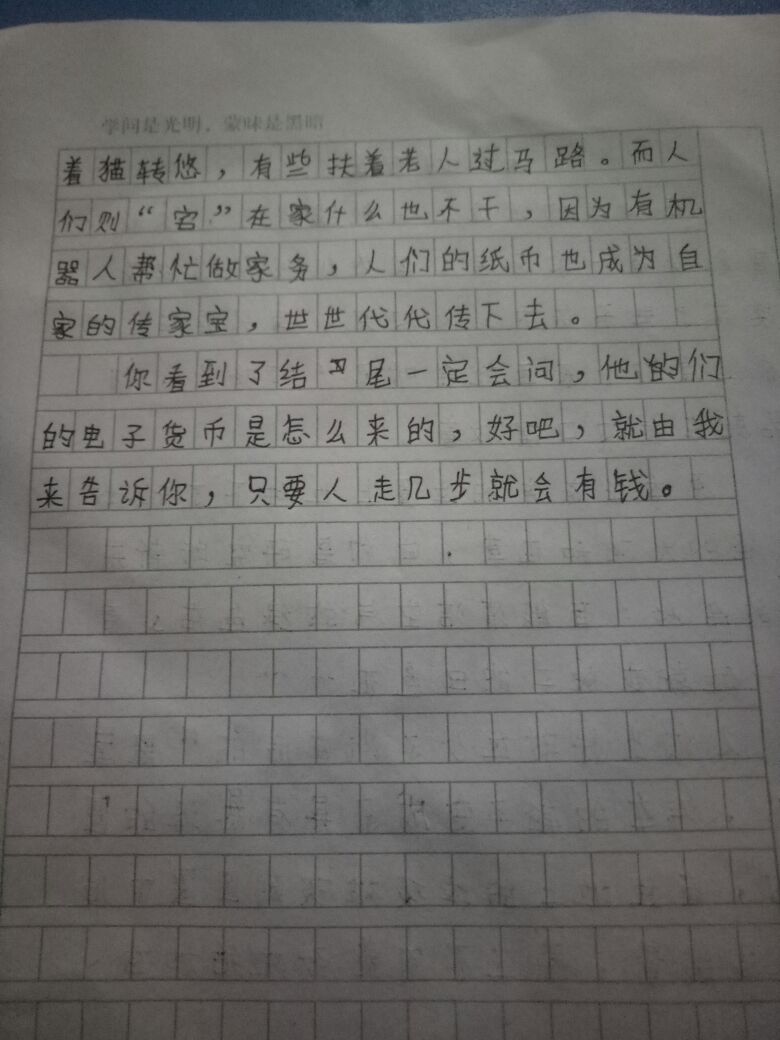 学问是光明，蒙昧是黑暗
着猫转悠，有些扶着老人过马路。而人
们则“宅”在家什么也不干，因为有机
器人帮忙做家务，人们的纸币也成为自
家的传家宝，世世代代传下去。
你看到了结尾一定会问，他的们
的电子货币是怎么来的，好吧，就由我
来告诉你，只要人走几步就会有钱。